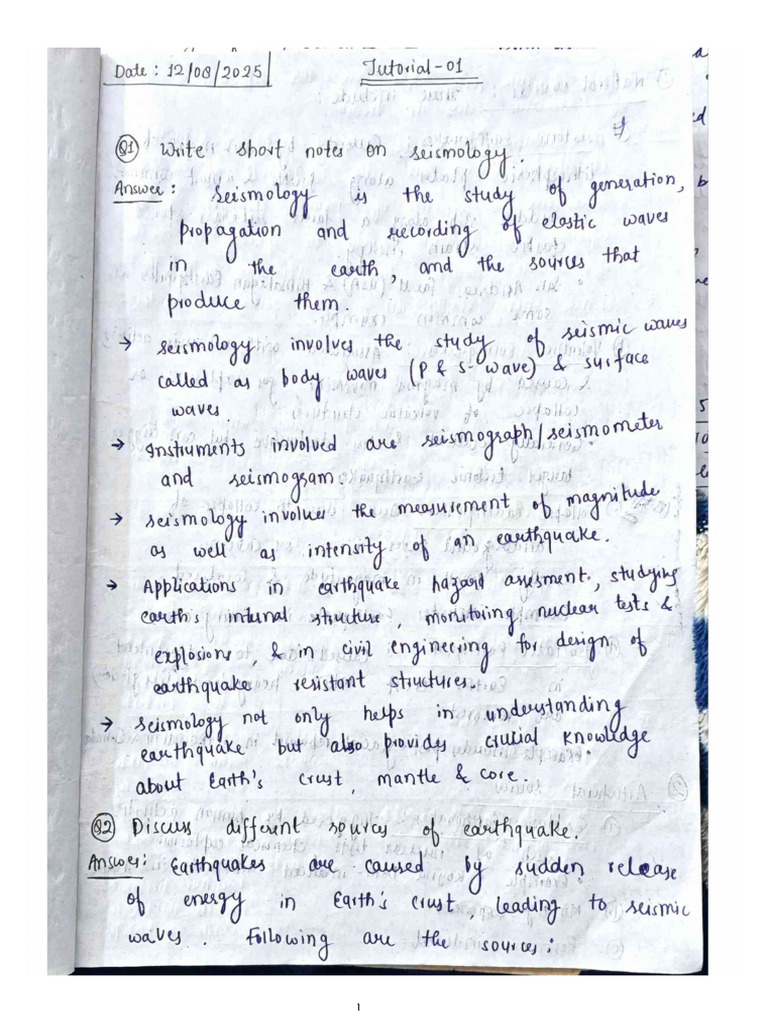 Date : 12/08/2025
Tutorial-01
Q1 Write short notes on seismology.
Answer : Seismology is the study of generation,
propagation and recording of elastic waves
in the earth, and the sources that
produce them.
→ Seismology involves the study of seismic waves
called as body waves (P & S-wave) & surface
waves.
→ Instruments involved are seismograph/seismometer
and seismogram.
→ Seismology involves the measurement of magnitude
as well as intensity of an earthquake.
→ Applications in earthquake hazard assesment, studying
earth's internal structure, monitoring nuclear tests &
explosions, & in civil engineering for design of
earthquake resistant structures.
→ Seismology not only helps in understanding
earthquake but also provides crucial knowledge
about Earth's crust, mantle & core.
Q2 Discuss different sources of earthquake.
Answer: Earthquakes are caused by sudden release
of energy in Earth's crust leading to seismic
waves. Following are the sources:
1